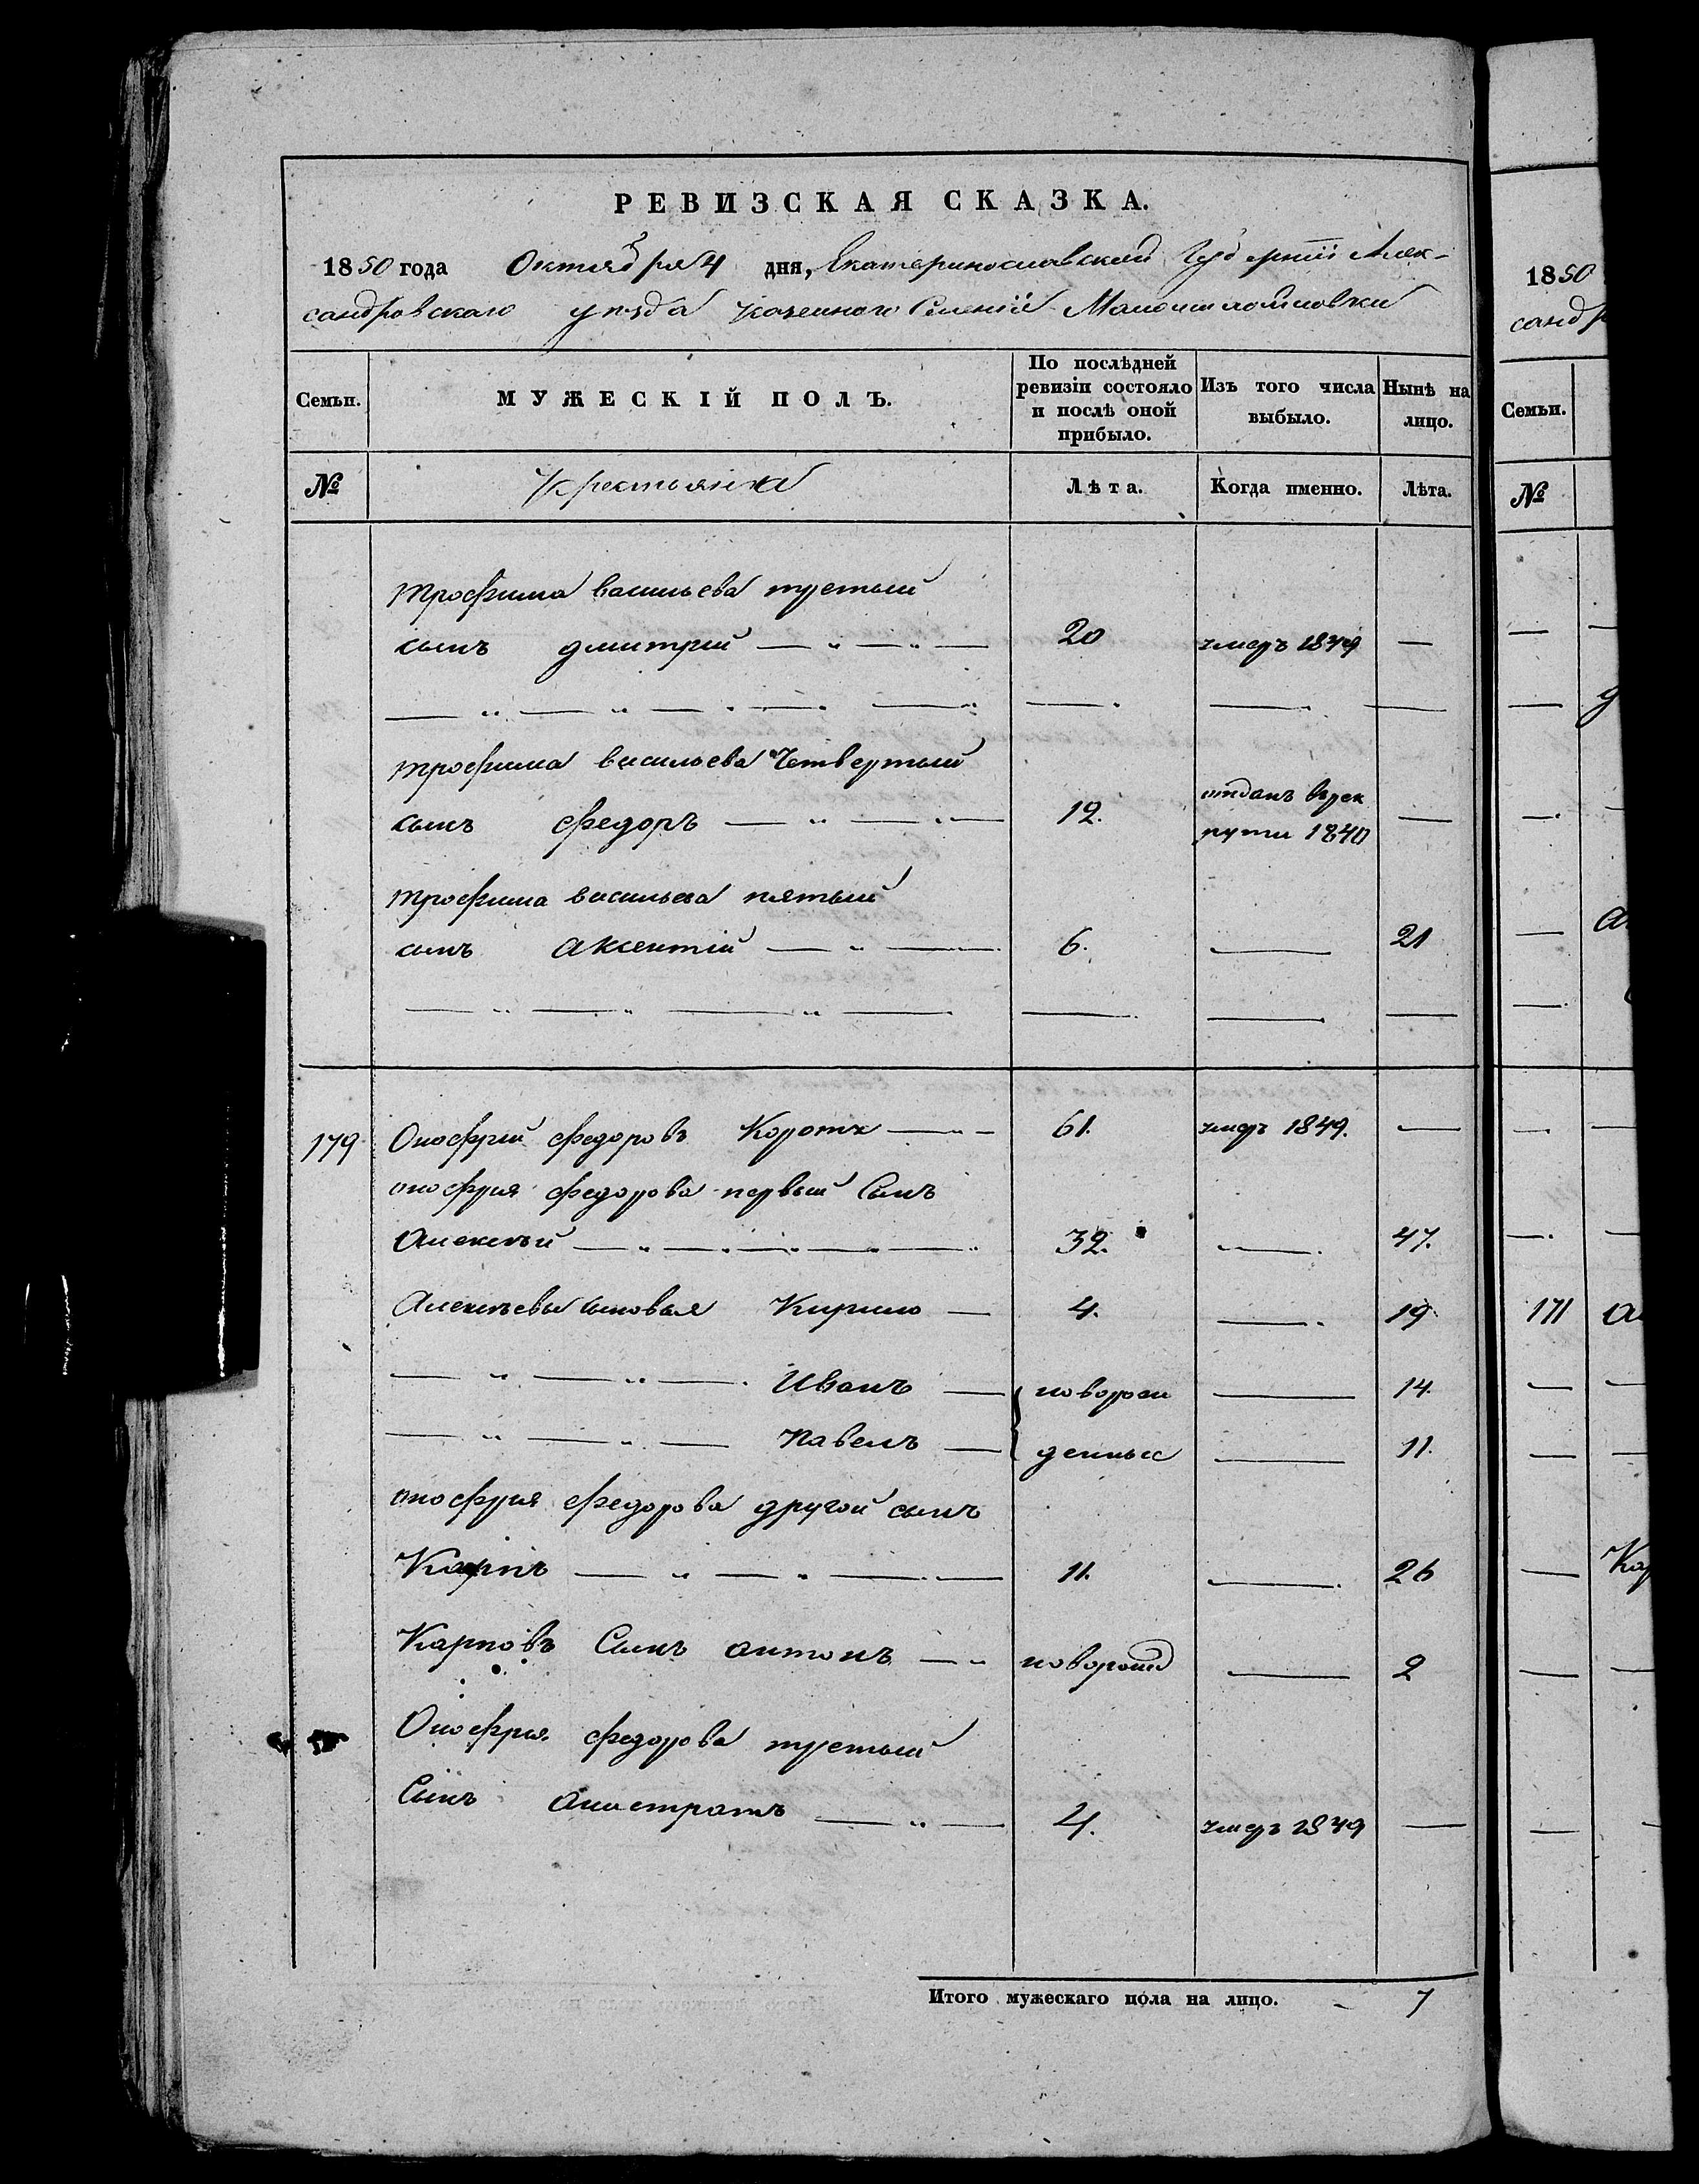 РЕВИЗСКАЯ СКАЗКА.
1850 года Октября 4 дня, Екатеринославской Губерніи Алек-
сандровскаго уезда казенного Селенія
Семьи.
МУЖЕСКІЙ ПОЛЪ.
По послѣдней
ревизіи состояло
и послѣ оной
прибыло.
Изъ того числа
выбыло.
Нынѣ на
лицо.
№
Лѣта.
Когда именно.
Лѣта.
трофима васильева третьий
сынъ дмитрий — „ — „ — 20 умеръ 1849 —
трофима васильева Четвертый
сынъ федоръ — „ — „ — 12. отданъ врек
руты 1840 —
трофима васильева пятый
сынъ аксентій — „ — 6. — 21
179 Онофрий федоровъ — „ — 61. умеръ 1849. —
онофрия федорова первый Сынъ
Алексъй — „ — „ — „ — „ — 32. — 47.
Алексъевы сыновья Кирило — 4. — 19
— „ — „ — Иванъ — новорож — 14.
— „ — „ — Павелъ — денные — 11.
онофрия федорова другой сынъ
Карпъ — „ — „ — 11. — 26
Карповъ Сынъ антонъ — „ новорожд — 2
Онофрия федорова третьий
Сынъ — „ — 4. умеръ 1849 —
Итого мужескаго пола на лицо. 7
1850
санд
Семьи.
№
171